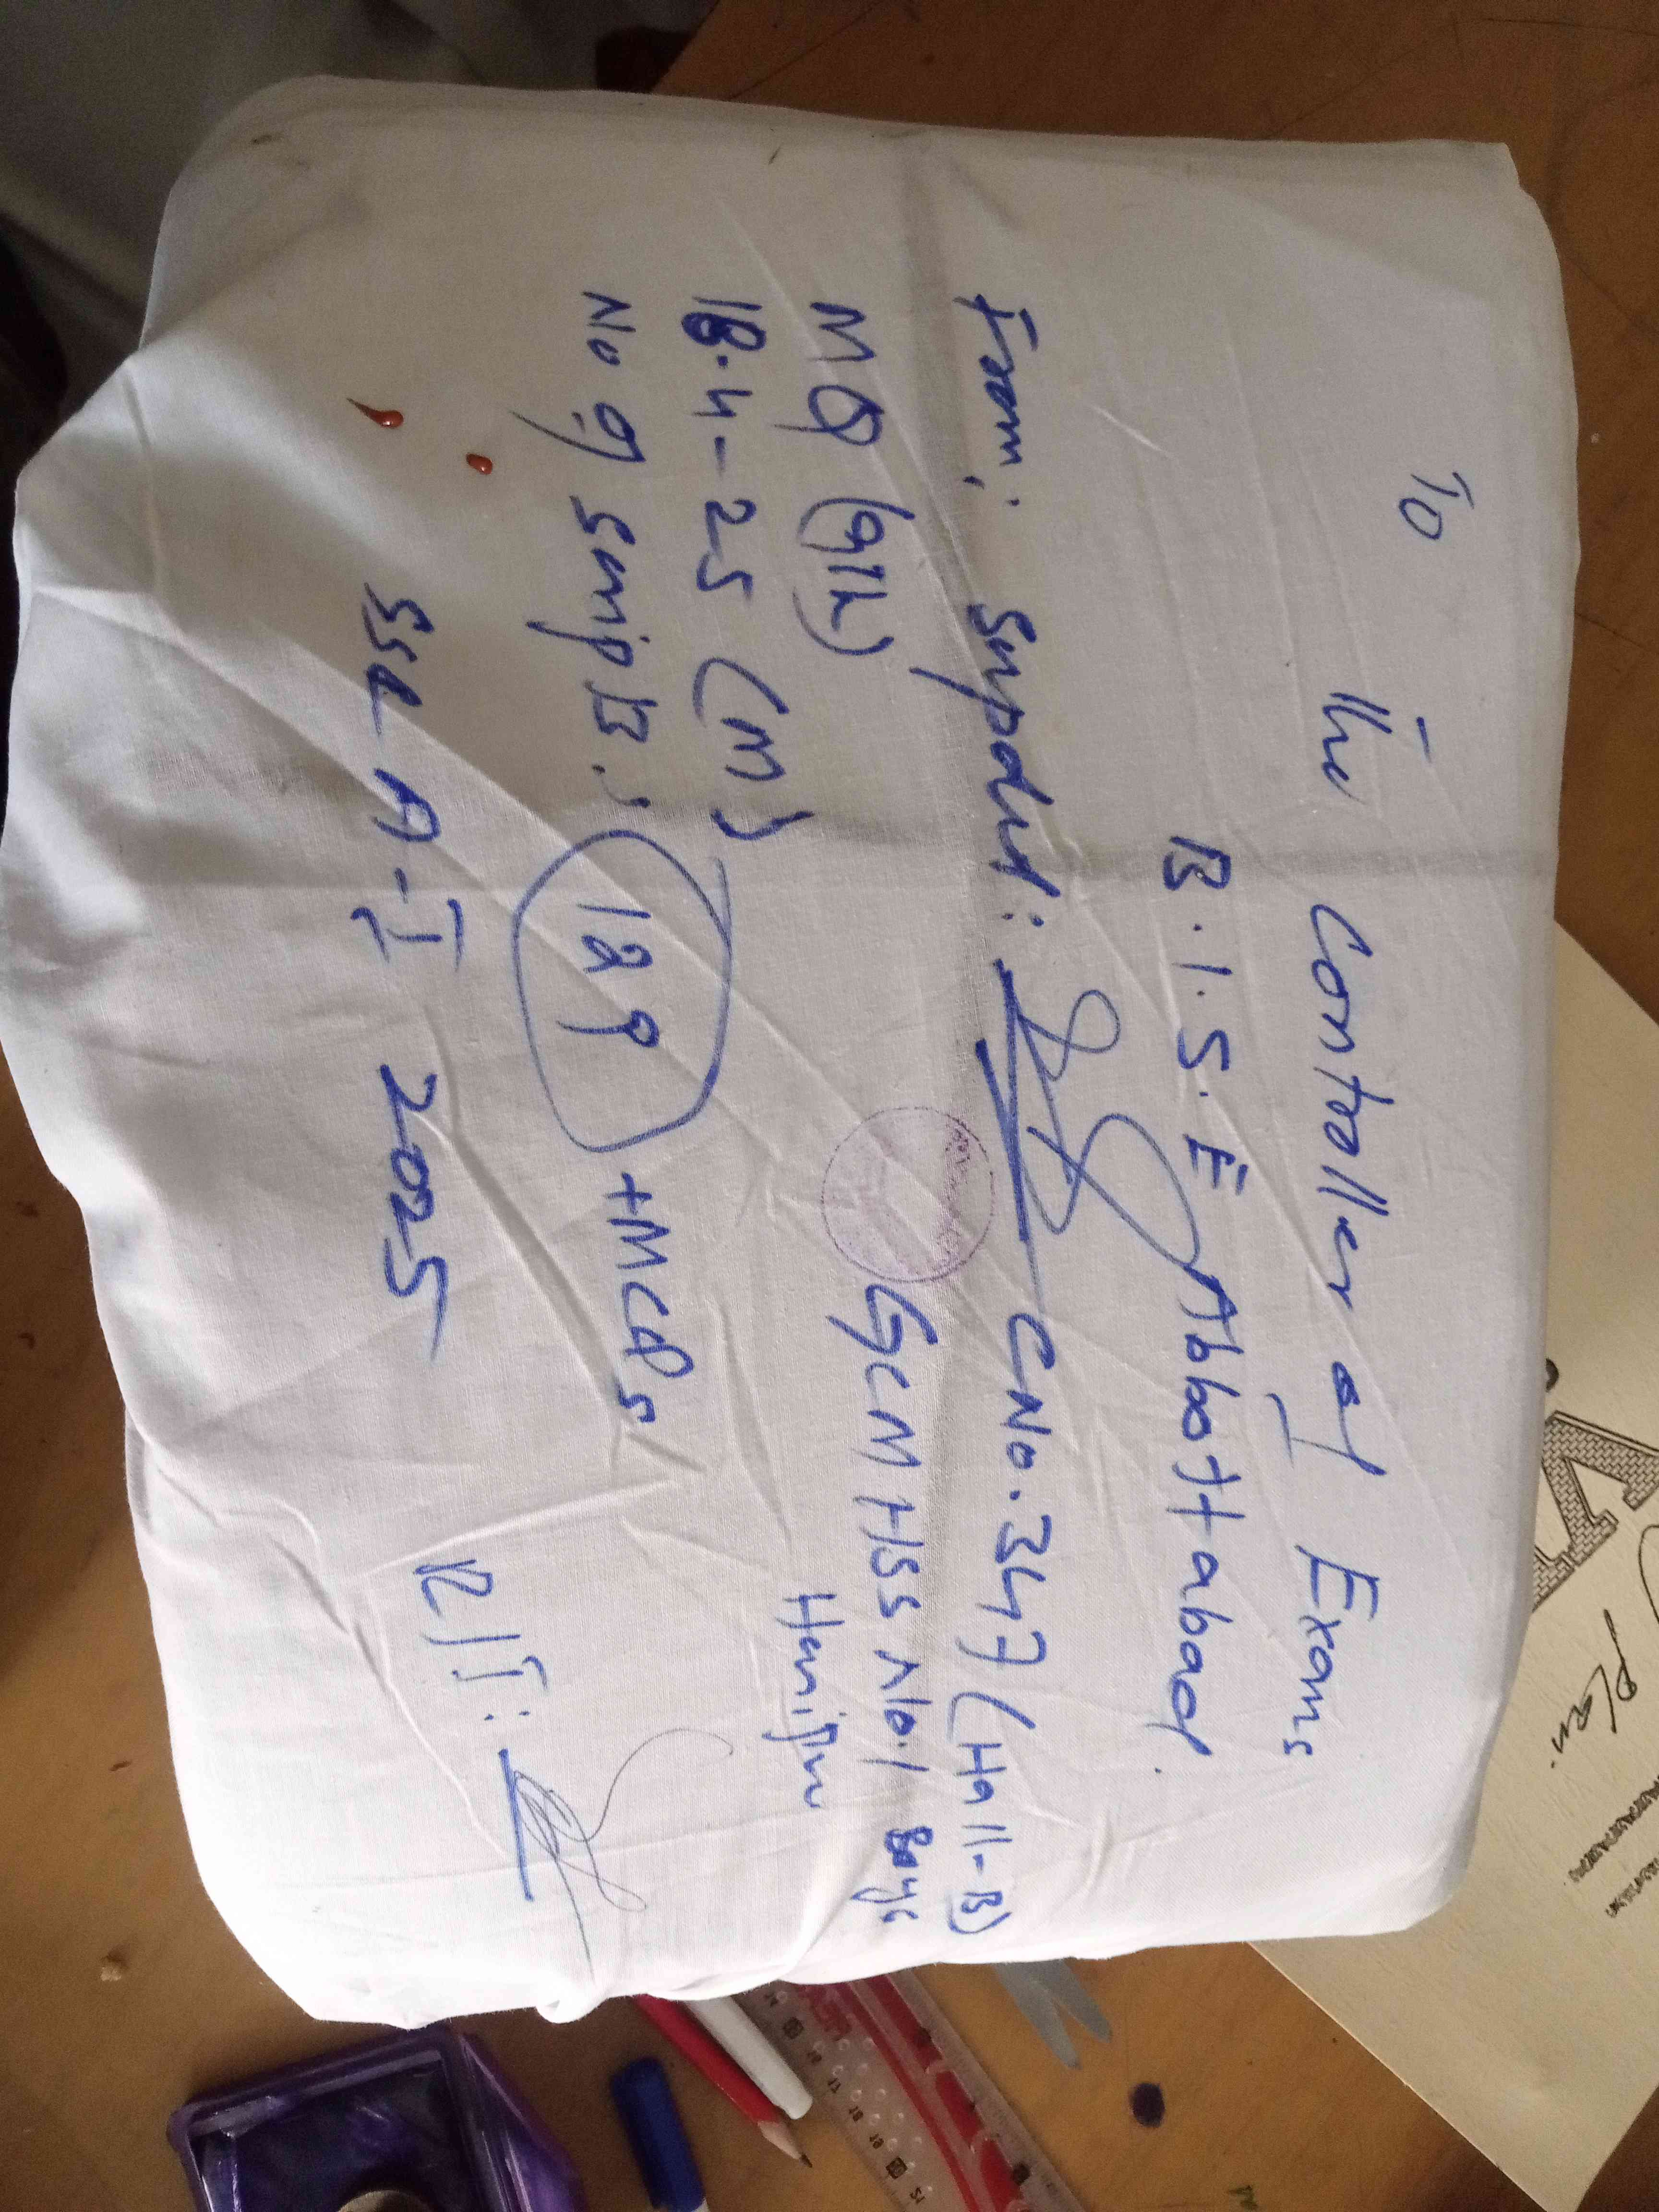 To
The Controller of Exams
B.I.S.E Abbottabad.
From: Supdtt: CNo.347 (Hall-B)
GCMHSS No.1 Boys
Haripur
M Q (9th)
18-4-25 (M)
No of Scripts: 129 + MCQs
SSC A-I 2025
R/I:
Plan.